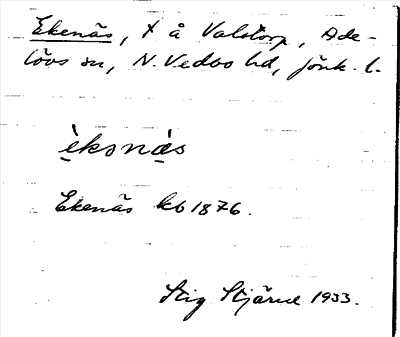 Ekenäs, t å Valstorp, Ade-
lövs sn, N. Vedbo hd, Jönk. l.
èksnás
Ekenäs kb 1876.
Stig Stjärne 1933.